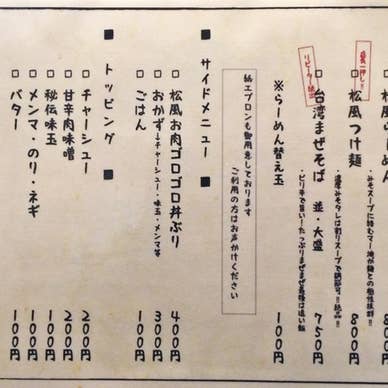 らーめん
８００円
店長一押し！！
松風つけ麺
・みそスープに絡むマー油が麺との相性抜群！！
８００円
リピーター続出
台湾まぜそば 並・大盛
・濃厚みそタレは割りスープで調節可！！絶品！！
・ピリ辛で旨い！たっぷりまぜまぜ最後は追い飯
７５０円
※らーめん替え玉
１００円
紙エプロンも御用意しております
ご利用の方はお声かけください
■ サイドメニュー ■
□ 松風お肉ゴロゴロ丼ぶり
４００円
□ おかず→チャーシュー・味玉・メンマ等
３００円
□ ごはん
１００円
■ トッピング ■
□ チャーシュー
２００円
□ 甘辛肉味噌
２００円
□ 秘伝味玉
１００円
□ メンマ・のり・ネギ
１００円
□ バター
１００円